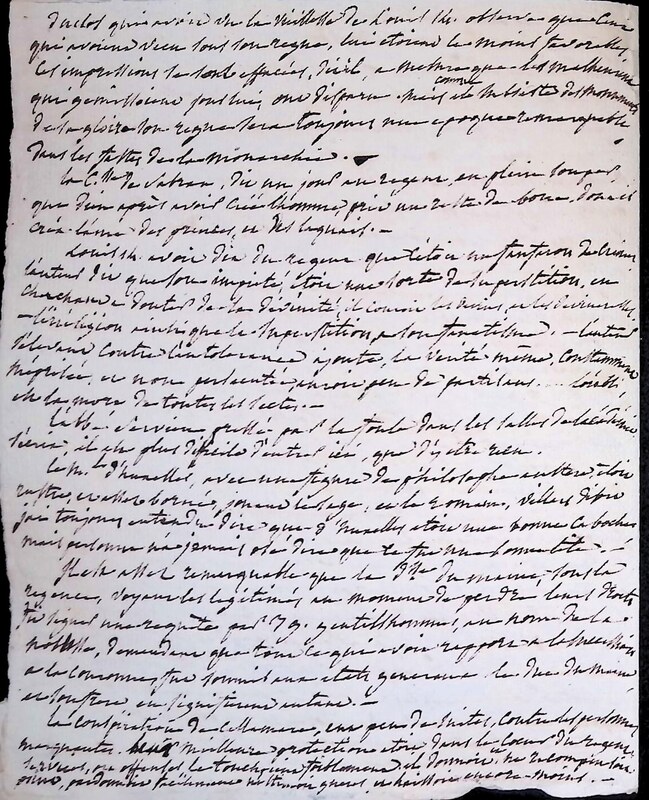 Duclos qui avoit vu la vieillesse de Louis 14. observe que ceux
qui avoient vecu sous son regne, lui étoient le moins favorables,
ces impressions se sont effacées, dit il, a mesure que les malheureux
qui gemissoient sous lui, ont disparu. mais comme il subsiste des monuments
de sa gloire son regne sera toujours une epoque remarquable
dans les fastes de la monarchie.
la C.sse de Sabran, dit un jour au regent, en plein souper,
que dieu après avoir créé l'homme, prit un reste de boue, dont il
créa l'ame des princes, et des laquais. —
Louis 14. avoit dit du regent que c'étoit un fanfaron de crimes
l'auteur dit que son impieté, étoit une sorte de superstition, en
cherchant à douter de la divinité, il couroit les devins, et les devineresses,
— l'irréligion ainsi que la superstition, a son fanatisme. — l'auteur
s'élevant contre l'intolerance ajoute, la vérité même, constamment
méprisée, et non persecutée, auroit peu de partisans... l'oubli,
est la mort de toutes les sectes. —
l'abbé Servien pressé par la foule dans les salles de l'académie
il est plus difficile d'entrer ici, que d'y etre reçu.
le M.al d'huxelles, avec une figure de philosophe austere étoit
et assez borné, jouant le sage, et le romain, Villars disoit
j'ai toujours entendu dire que d'Huxelles etoit une bonne caboche
mais personne n'a jamais osé dire que ce fut une bonne tête. —
Il est assez remarquable que la D.sse du maine, sous la
regence, voyant les legitimés au moment de perdre leurs droits
fit signer une requête par 39. gentilshommes, au nom de la
noblesse, demandant que tout ce qui avoit rapport a la succession
a la couronne, fut soumis aux etats generaux. le Duc du maine,
et son frere, en signifierent autant. —
la conspiration de Cellamare, eut peu de suites, contre des personnes
marquantes. meilleure protection etoit dans le coeur du regent,
services, ou offenses le touchoient foiblement il donnoit, ne recompensoit
point, pardonnoit facilement n'estimoit gueres, et haissoit encore moins. —